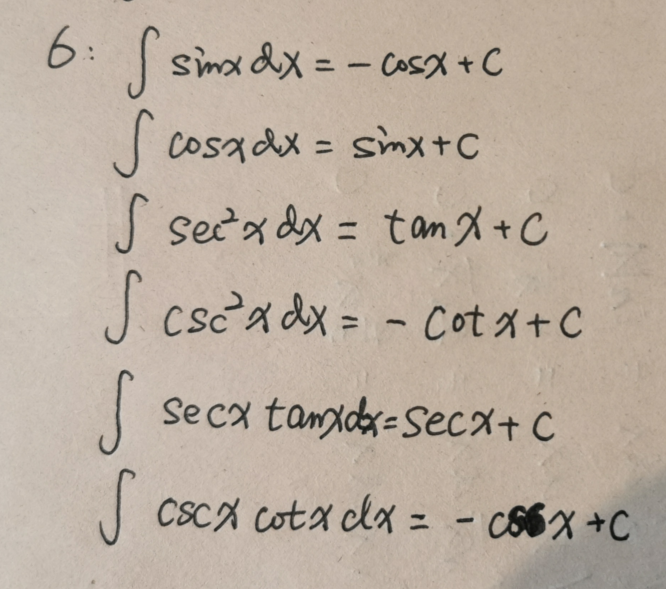 6: ∫ sinx dx = - cosx + C
∫ cosx dx = sinx + C
∫ sec²x dx = tanx + C
∫ csc²x dx = - cotx + C
∫ secx tanx dx = secx + C
∫ cscx cotx dx = - cscx + C